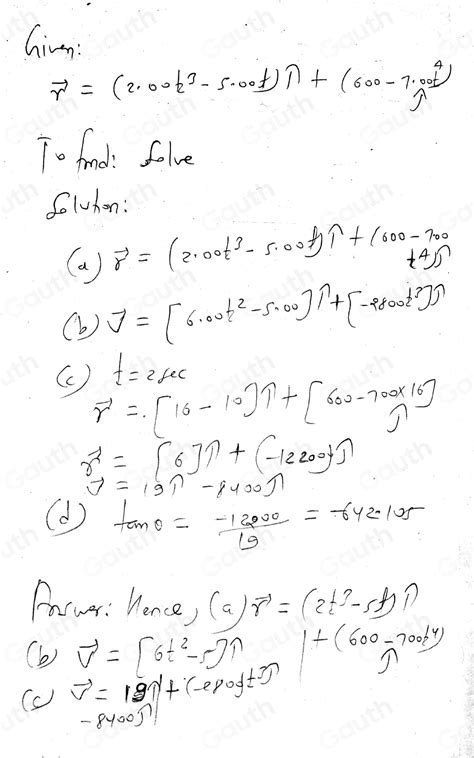 Given:
r⃗ = (2.00t³ - 5.00t) î + (600 - 7.00t⁴) ĵ
To find: Solve
Solution:
(a) r⃗ = (2.00t³ - 5.00t) î + (600 - 700 t⁴) ĵ
(b) v⃗ = [6.00t² - 5.00] î + [-2800t³] ĵ
(c) t = 2 sec
r⃗ = [16 - 10] î + [600 - 700×16] ĵ
r⃗ = [6] î + (-12200) ĵ
v⃗ = 19 î - 8400 ĵ
(d) tan θ = -12000/19 = -642.105
Answer: Hence, (a) r⃗ = (2t³ - 5t) î + (600 - 700t⁴) ĵ
(b) v⃗ = [6t² - 5] î + (-2800t³) ĵ
(c) v⃗ = 19 î - 8400 ĵ